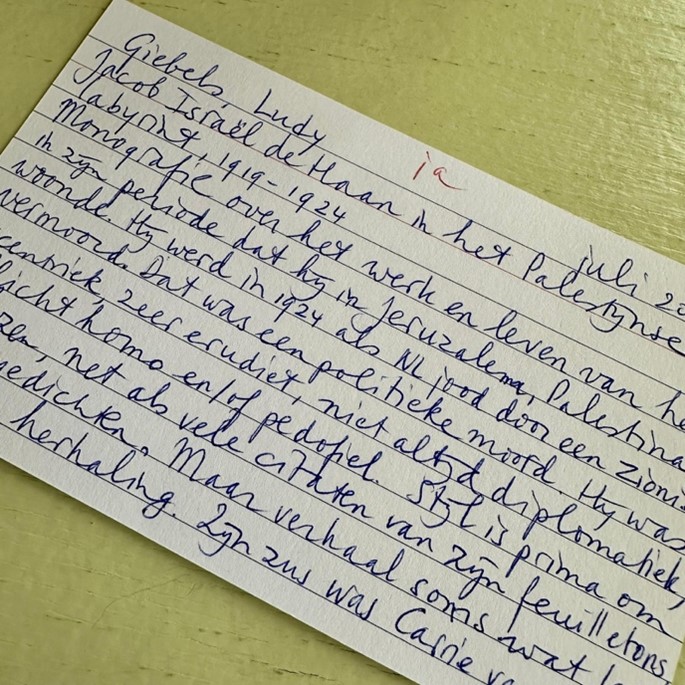 Giebels, Ludy
ja
juli 20
Jacob Israël de Haan in het Palestijnse
labyrint, 1919-1924
Monografie over het werk en leven van he
in zijn periode dat hij in Jeruzalem, Palestina
woonde. Hij werd in 1924 als NL jood door een zionis
vermoord. Dat was een politieke moord. Hij was
centriek, zeer erudiet, niet altijd diplomatiek,
licht homo en/of pedofiel. Stijl is prima om
zen, net als vele citaten van zijn feuilletons
gedichten. Maar verhaal soms wat
herhaling. Zijn zus was Carrie v